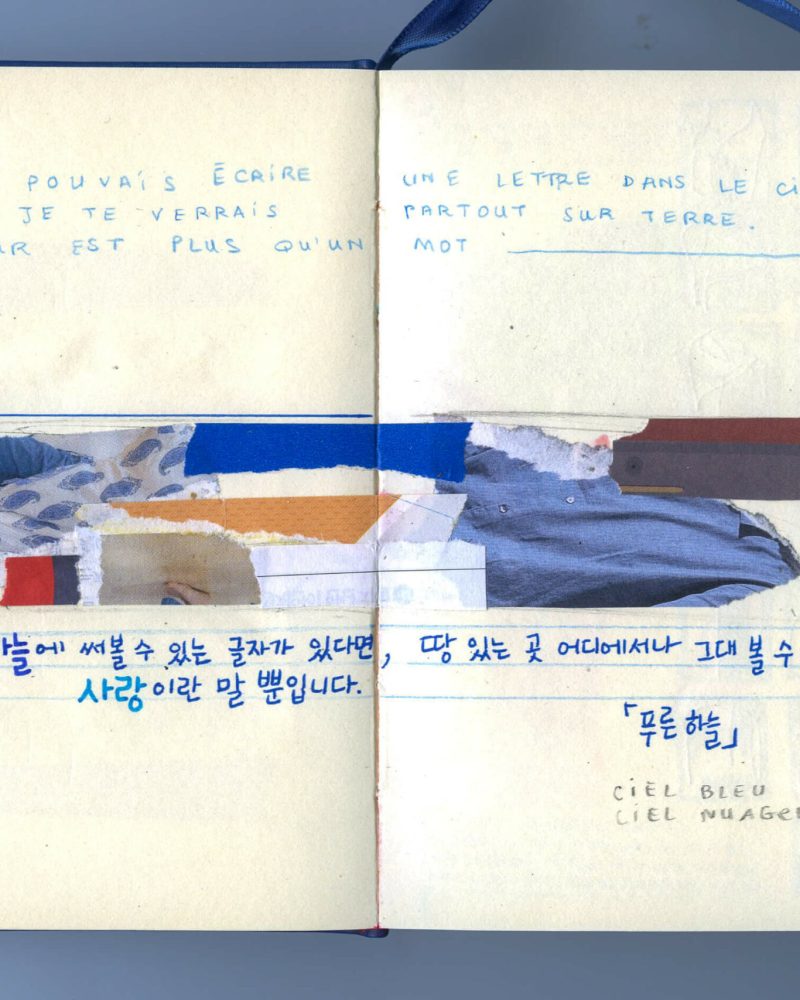 POUVAIS ÉCRIRE UNE LETTRE DANS LE CI
JE TE VERRAIS PARTOUT SUR TERRE.
UR EST PLUS QU'UN MOT
하늘에 써볼 수 있는 글자가 있다면, 땅 있는 곳 어디에서나 그대 볼 수
사랑이란 말 뿐입니다.
「푸른 하늘」
CIEL BLEU
CIEL NUAGE